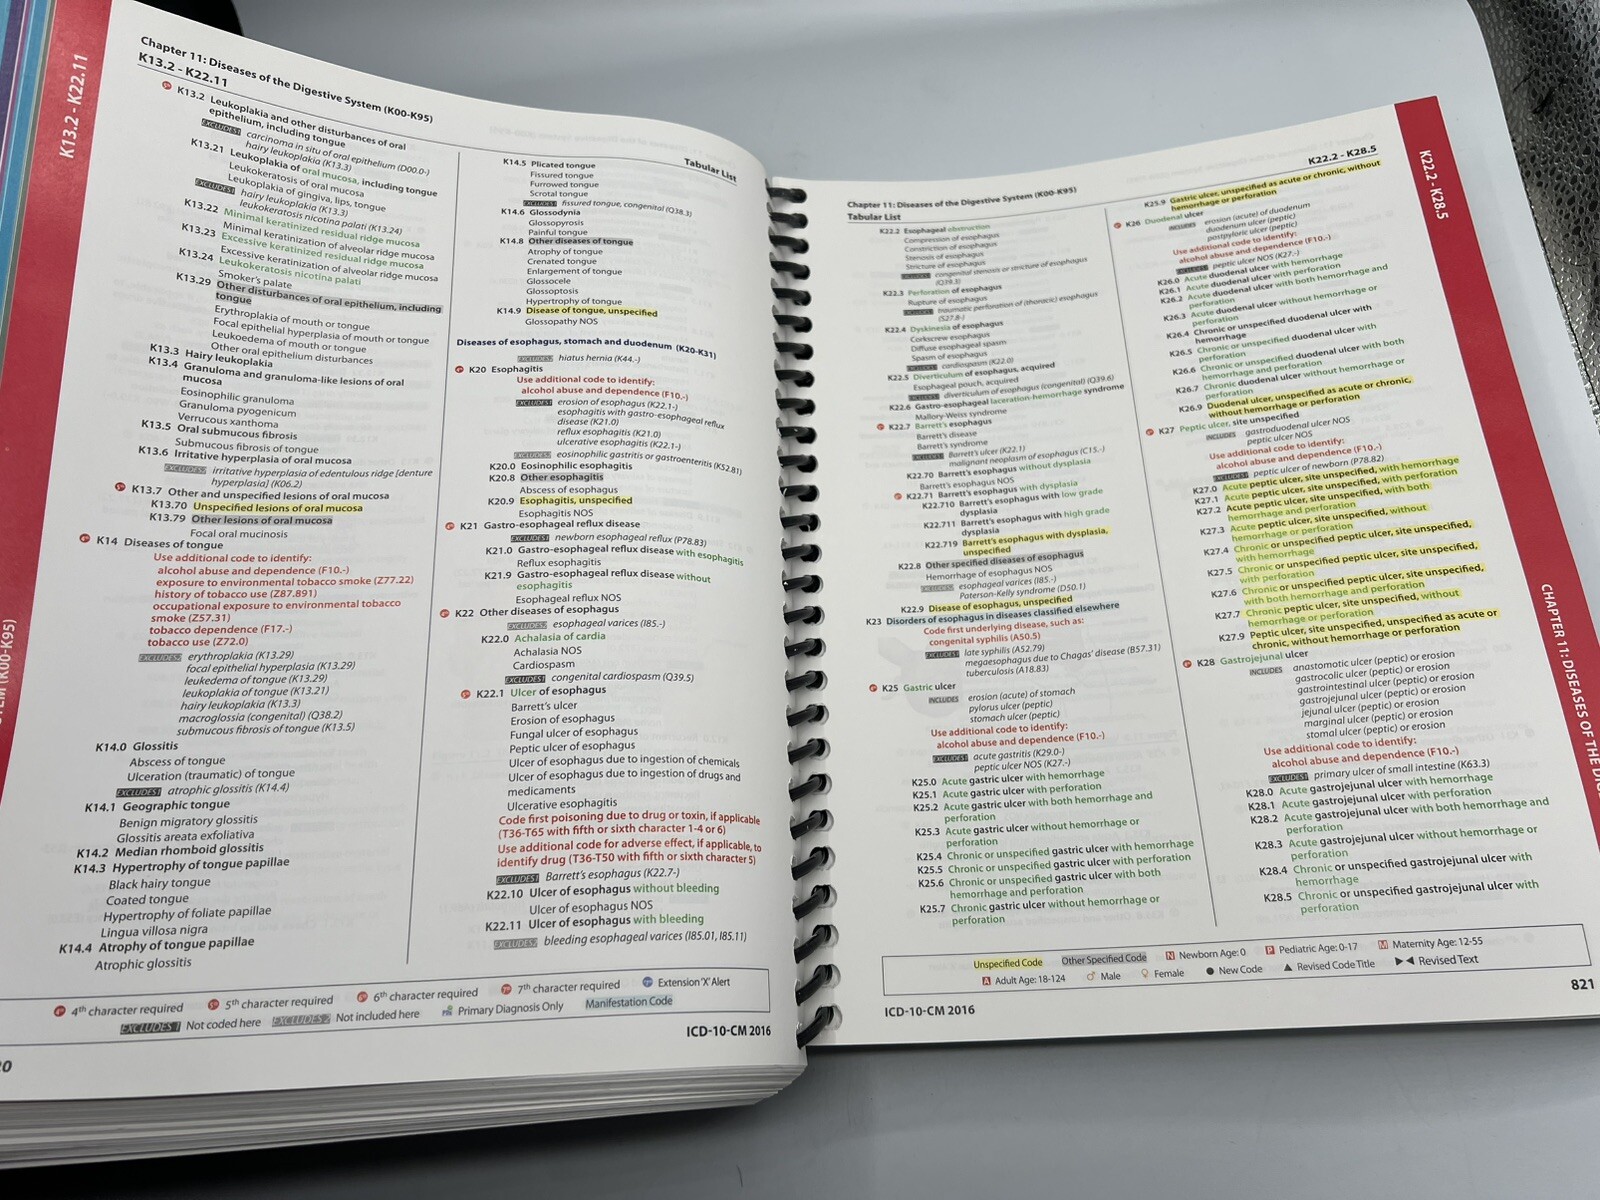 K13.2 - K22.11
Chapter 11: Diseases of the Digestive System (K00-K95)
K13.2 - K22.11
Tabular List
K13.2 Leukoplakia and other disturbances of oral
epithelium, including tongue
EXCLUDES1 carcinoma in situ of oral epithelium (D00.0-)
hairy leukoplakia (K13.3)
K13.21 Leukoplakia of oral mucosa, including tongue
Leukokeratosis of oral mucosa
Leukoplakia of gingiva, lips, tongue
EXCLUDES1 hairy leukoplakia (K13.3)
leukokeratosis nicotina palati (K13.24)
K13.22 Minimal keratinized residual ridge mucosa
Minimal keratinization of alveolar ridge mucosa
K13.23 Excessive keratinized residual ridge mucosa
Excessive keratinization of alveolar ridge mucosa
K13.24 Leukokeratosis nicotina palati
Smoker's palate
K13.29 Other disturbances of oral epithelium, including
tongue
Erythroplakia of mouth or tongue
Focal epithelial hyperplasia of mouth or tongue
Leukoedema of mouth or tongue
Other oral epithelium disturbances
K13.3 Hairy leukoplakia
K13.4 Granuloma and granuloma-like lesions of oral
mucosa
Eosinophilic granuloma
Granuloma pyogenicum
Verrucous xanthoma
K13.5 Oral submucous fibrosis
Submucous fibrosis of tongue
K13.6 Irritative hyperplasia of oral mucosa
EXCLUDES2 irritative hyperplasia of edentulous ridge [denture
hyperplasia] (K06.2)
K13.7 Other and unspecified lesions of oral mucosa
K13.70 Unspecified lesions of oral mucosa
K13.79 Other lesions of oral mucosa
Focal oral mucinosis
K14 Diseases of tongue
Use additional code to identify:
alcohol abuse and dependence (F10.-)
exposure to environmental tobacco smoke (Z77.22)
history of tobacco use (Z87.891)
occupational exposure to environmental tobacco
smoke (Z57.31)
tobacco dependence (F17.-)
tobacco use (Z72.0)
EXCLUDES2 erythroplakia (K13.29)
focal epithelial hyperplasia (K13.29)
leukedema of tongue (K13.29)
leukoplakia of tongue (K13.21)
hairy leukoplakia (K13.3)
macroglossia (congenital) (Q38.2)
submucous fibrosis of tongue (K13.5)
K14.0 Glossitis
Abscess of tongue
Ulceration (traumatic) of tongue
EXCLUDES1 atrophic glossitis (K14.4)
K14.1 Geographic tongue
Benign migratory glossitis
Glossitis areata exfoliativa
K14.2 Median rhomboid glossitis
K14.3 Hypertrophy of tongue papillae
Black hairy tongue
Coated tongue
Hypertrophy of foliate papillae
Lingua villosa nigra
K14.4 Atrophy of tongue papillae
Atrophic glossitis
K14.5 Plicated tongue
Fissured tongue
Furrowed tongue
Scrotal tongue
EXCLUDES1 fissured tongue, congenital (Q38.3)
K14.6 Glossodynia
Glossopyrosis
Painful tongue
K14.8 Other diseases of tongue
Atrophy of tongue
Crenated tongue
Enlargement of tongue
Glossocele
Glossoptosis
Hypertrophy of tongue
K14.9 Disease of tongue, unspecified
Glossopathy NOS
Diseases of esophagus, stomach and duodenum (K20-K31)
EXCLUDES2 hiatus hernia (K44.-)
K20 Esophagitis
Use additional code to identify:
alcohol abuse and dependence (F10.-)
EXCLUDES1 erosion of esophagus (K22.1-)
esophagitis with gastro-esophageal reflux
disease (K21.0)
reflux esophagitis (K21.0)
ulcerative esophagitis (K22.1-)
EXCLUDES2 eosinophilic gastritis or gastroenteritis (K52.81)
K20.0 Eosinophilic esophagitis
K20.8 Other esophagitis
Abscess of esophagus
K20.9 Esophagitis, unspecified
Esophagitis NOS
K21 Gastro-esophageal reflux disease
EXCLUDES1 newborn esophageal reflux (P78.83)
K21.0 Gastro-esophageal reflux disease with esophagitis
Reflux esophagitis
K21.9 Gastro-esophageal reflux disease without
esophagitis
Esophageal reflux NOS
K22 Other diseases of esophagus
EXCLUDES2 esophageal varices (I85.-)
K22.0 Achalasia of cardia
Achalasia NOS
Cardiospasm
EXCLUDES1 congenital cardiospasm (Q39.5)
K22.1 Ulcer of esophagus
Barrett's ulcer
Erosion of esophagus
Fungal ulcer of esophagus
Peptic ulcer of esophagus
Ulcer of esophagus due to ingestion of chemicals
Ulcer of esophagus due to ingestion of drugs and
medicaments
Ulcerative esophagitis
Code first poisoning due to drug or toxin, if applicable
(T36-T65 with fifth or sixth character 1-4 or 6)
Use additional code for adverse effect, if applicable, to
identify drug (T36-T50 with fifth or sixth character 5)
EXCLUDES1 Barrett's esophagus (K22.7-)
K22.10 Ulcer of esophagus without bleeding
Ulcer of esophagus NOS
K22.11 Ulcer of esophagus with bleeding
EXCLUDES2 bleeding esophageal varices (I85.01, I85.11)
4th character required 5th character required 6th character required 7th character required Extension 'X' Alert
EXCLUDES 1 Not coded here EXCLUDES 2 Not included here Primary Diagnosis Only Manifestation Code
ICD-10-CM 2016
Chapter 11: Diseases of the Digestive System (K00-K95)
Tabular List
K22.2 - K28.5
K22.2 Esophageal obstruction
Compression of esophagus
Constriction of esophagus
Stenosis of esophagus
Stricture of esophagus
EXCLUDES1 congenital stenosis or stricture of esophagus
(Q39.3)
K22.3 Perforation of esophagus
Rupture of esophagus
EXCLUDES1 traumatic perforation of (thoracic) esophagus
(S27.8-)
K22.4 Dyskinesia of esophagus
Corkscrew esophagus
Diffuse esophageal spasm
Spasm of esophagus
EXCLUDES1 cardiospasm (K22.0)
K22.5 Diverticulum of esophagus, acquired
Esophageal pouch, acquired
EXCLUDES1 diverticulum of esophagus (congenital) (Q39.6)
K22.6 Gastro-esophageal laceration-hemorrhage syndrome
Mallory-Weiss syndrome
K22.7 Barrett's esophagus
Barrett's disease
Barrett's syndrome
EXCLUDES1 Barrett's ulcer (K22.1)
malignant neoplasm of esophagus (C15.-)
K22.70 Barrett's esophagus without dysplasia
Barrett's esophagus NOS
K22.71 Barrett's esophagus with dysplasia
K22.710 Barrett's esophagus with low grade
dysplasia
K22.711 Barrett's esophagus with high grade
dysplasia
K22.719 Barrett's esophagus with dysplasia,
unspecified
K22.8 Other specified diseases of esophagus
Hemorrhage of esophagus NOS
EXCLUDES2 esophageal varices (I85.-)
Paterson-Kelly syndrome (D50.1)
K22.9 Disease of esophagus, unspecified
K23 Disorders of esophagus in diseases classified elsewhere
Code first underlying disease, such as:
congenital syphilis (A50.5)
EXCLUDES1 late syphilis (A52.79)
megaesophagus due to Chagas' disease (B57.31)
tuberculosis (A18.83)
K25 Gastric ulcer
INCLUDES erosion (acute) of stomach
pylorus ulcer (peptic)
stomach ulcer (peptic)
Use additional code to identify:
alcohol abuse and dependence (F10.-)
EXCLUDES1 acute gastritis (K29.0-)
peptic ulcer NOS (K27.-)
K25.0 Acute gastric ulcer with hemorrhage
K25.1 Acute gastric ulcer with perforation
K25.2 Acute gastric ulcer with both hemorrhage and
perforation
K25.3 Acute gastric ulcer without hemorrhage or
perforation
K25.4 Chronic or unspecified gastric ulcer with hemorrhage
K25.5 Chronic or unspecified gastric ulcer with perforation
K25.6 Chronic or unspecified gastric ulcer with both
hemorrhage and perforation
K25.7 Chronic gastric ulcer without hemorrhage or
perforation
K25.9 Gastric ulcer, unspecified as acute or chronic, without
hemorrhage or perforation
K26 Duodenal ulcer
INCLUDES erosion (acute) of duodenum
duodenum ulcer (peptic)
postpyloric ulcer (peptic)
Use additional code to identify:
alcohol abuse and dependence (F10.-)
EXCLUDES1 peptic ulcer NOS (K27.-)
K26.0 Acute duodenal ulcer with hemorrhage
K26.1 Acute duodenal ulcer with perforation
K26.2 Acute duodenal ulcer with both hemorrhage and
perforation
K26.3 Acute duodenal ulcer without hemorrhage or
perforation
K26.4 Chronic or unspecified duodenal ulcer with
hemorrhage
K26.5 Chronic or unspecified duodenal ulcer with
perforation
K26.6 Chronic or unspecified duodenal ulcer with both
hemorrhage and perforation
K26.7 Chronic duodenal ulcer without hemorrhage or
perforation
K26.9 Duodenal ulcer, unspecified as acute or chronic,
without hemorrhage or perforation
K27 Peptic ulcer, site unspecified
INCLUDES gastroduodenal ulcer NOS
peptic ulcer NOS
Use additional code to identify:
alcohol abuse and dependence (F10.-)
EXCLUDES1 peptic ulcer of newborn (P78.82)
K27.0 Acute peptic ulcer, site unspecified, with hemorrhage
K27.1 Acute peptic ulcer, site unspecified, with perforation
K27.2 Acute peptic ulcer, site unspecified, with both
hemorrhage and perforation
K27.3 Acute peptic ulcer, site unspecified, without
hemorrhage or perforation
K27.4 Chronic or unspecified peptic ulcer, site unspecified,
with hemorrhage
K27.5 Chronic or unspecified peptic ulcer, site unspecified,
with perforation
K27.6 Chronic or unspecified peptic ulcer, site unspecified,
with both hemorrhage and perforation
K27.7 Chronic peptic ulcer, site unspecified, without
hemorrhage or perforation
K27.9 Peptic ulcer, site unspecified, unspecified as acute or
chronic, without hemorrhage or perforation
K28 Gastrojejunal ulcer
INCLUDES anastomotic ulcer (peptic) or erosion
gastrocolic ulcer (peptic) or erosion
gastrointestinal ulcer (peptic) or erosion
gastrojejunal ulcer (peptic) or erosion
jejunal ulcer (peptic) or erosion
marginal ulcer (peptic) or erosion
stomal ulcer (peptic) or erosion
Use additional code to identify:
alcohol abuse and dependence (F10.-)
EXCLUDES1 primary ulcer of small intestine (K63.3)
K28.0 Acute gastrojejunal ulcer with hemorrhage
K28.1 Acute gastrojejunal ulcer with perforation
K28.2 Acute gastrojejunal ulcer with both hemorrhage and
perforation
K28.3 Acute gastrojejunal ulcer without hemorrhage or
perforation
K28.4 Chronic or unspecified gastrojejunal ulcer with
hemorrhage
K28.5 Chronic or unspecified gastrojejunal ulcer with
perforation
Unspecified Code Other Specified Code N Newborn Age: 0 P Pediatric Age: 0-17 M Maternity Age: 12-55
A Adult Age: 18-124 ♂ Male ♀ Female ● New Code ▲ Revised Code Title ►◄ Revised Text
ICD-10-CM 2016
821
K22.2 - K28.5
CHAPTER 11: DISEASES OF THE